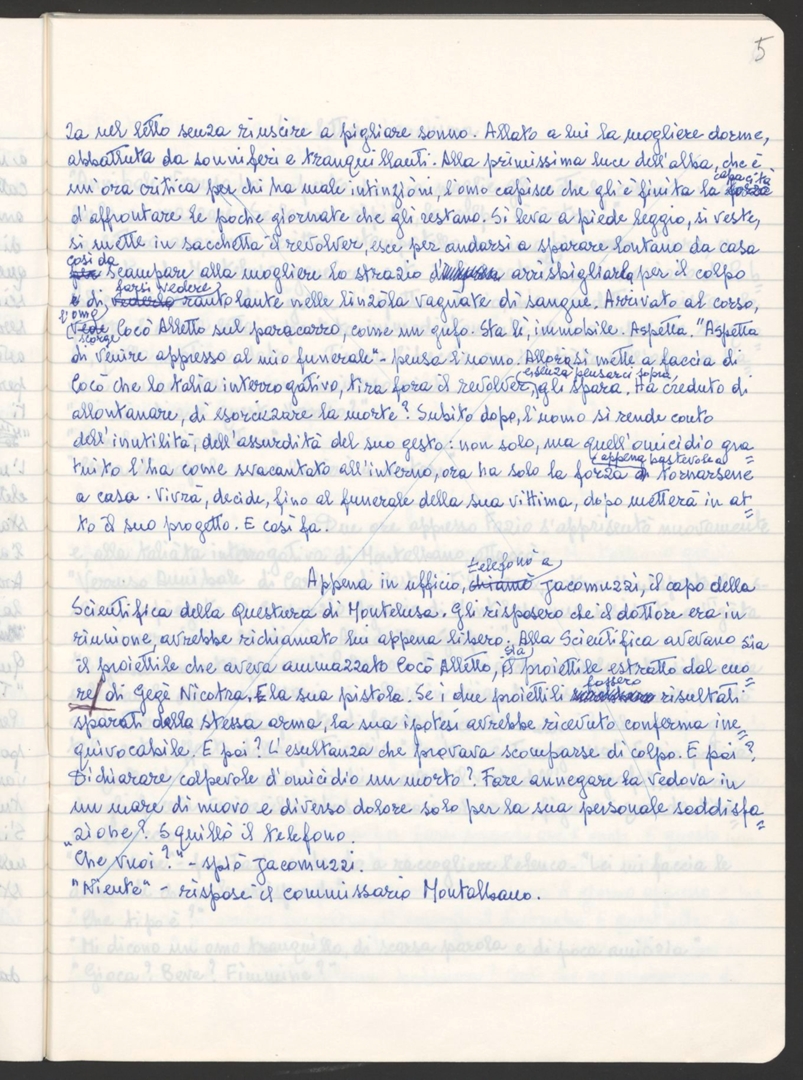 5
za nel letto senza riuscire a pigliare sonno. Allato a lui la mogliere dorme,
abbattuta da sonniferi e tranquillanti. Alla primissima luce dell'alba, che è
capacità
un'ora critica per chi ha male intinzioni, l'omo capisce che gli è finita la forza
d'affrontare le poche giornate che gli restano. Si leva a piede leggio, si veste,
si mette in sacchetta il revolver, esce per andarsi a sparare lontano da casa
così da
per scampare alla mogliere lo strazio arrisbigliarla per il colpo
farsi vedere
e di vederlo rantolante nelle linzòla vagnate di sangue. Arrivato al corso,
l'omo
vede Cocò Alletto sul paracarro, come un gufo. Sta lì, immobile. Aspetta. "Aspetta
scorge
di venire appresso al mio funerale" - pensa l'uomo. Allora si mette a faccia di
e senza pensarci sopra
Cocò che lo talìa interrogativo, tira fora il revolver, gli spara. Ha creduto di
allontanare, di esorcizzare la morte? Subito dopo, l'uomo si rende conto
dell'inutilità, dell'assurdità del suo gesto: non solo, ma quell'omicidio gra=
appena bastevole a
tuito l'ha come svacantato all'interno, ora ha solo la forza di tornarsene
a casa. Vivrà, decide, fino al funerale della sua vittima, dopo metterà in at=
to il suo progetto. E così fa.
telefonò a
Appena in ufficio, chiamò Jacomuzzi, il capo della
Scientifica della Questura di Montelusa. Gli risposero che il dottore era in
riunione, avrebbe richiamato lui appena libero. Alla Scientifica avevano sia
sia
il proiettile che aveva ammazzato Cocò Alletto, il proiettile estratto dal cuo=
fossero
re di Gegè Nicotra. E la sua pistola. Se i due proiettili risultati
sparati dalla stessa arma, la sua ipotesi avrebbe ricevuto conferma ine=
quivocabile. E poi? L'esultanza che provava scomparse di colpo. E poi?
Dichiarare colpevole d'omicidio un morto? Fare annegare la vedova in
un mare di nuovo e diverso dolore solo per la sua personale soddisfa=
zione? Squillò il telefono.
"Che vuoi?" - spiò Jacomuzzi.
"Niente" - rispose il commissario Montalbano.